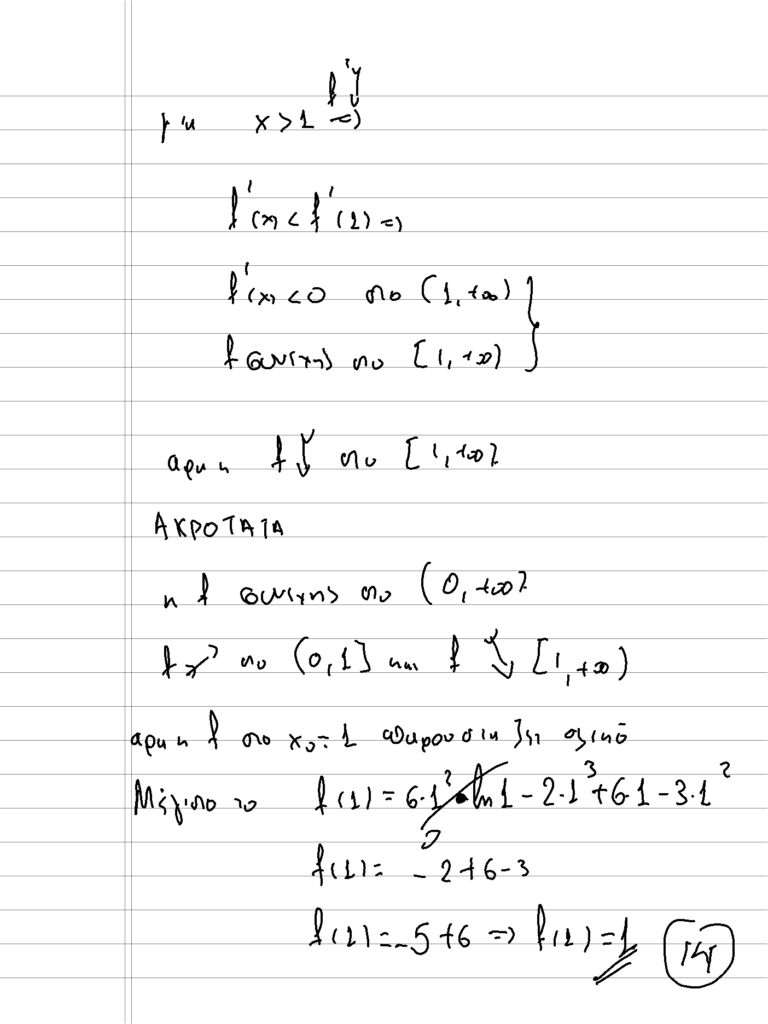 για x > 1 ⇒ f'↓
f'(x) < f'(1) ⇒
f'(x) < 0 στο (1, +∞)
f συνεχης στο [1, +∞)
αρα η f ↓ στο [1, +∞)
ΑΚΡΟΤΑΤΑ
η f συνεχης στο (0, +∞)
f ↗ στο (0, 1] και f ↘ [1, +∞)
αρα η f στο x₀ = 1 παρουσιαζει ολικό
Μέγιστο το f(1) = 6·1²·ln1 - 2·1³ + 6·1 - 3·1²
0
f(1) = -2 + 6 - 3
f(1) = -5 + 6 ⇒ f(1) = 1
14